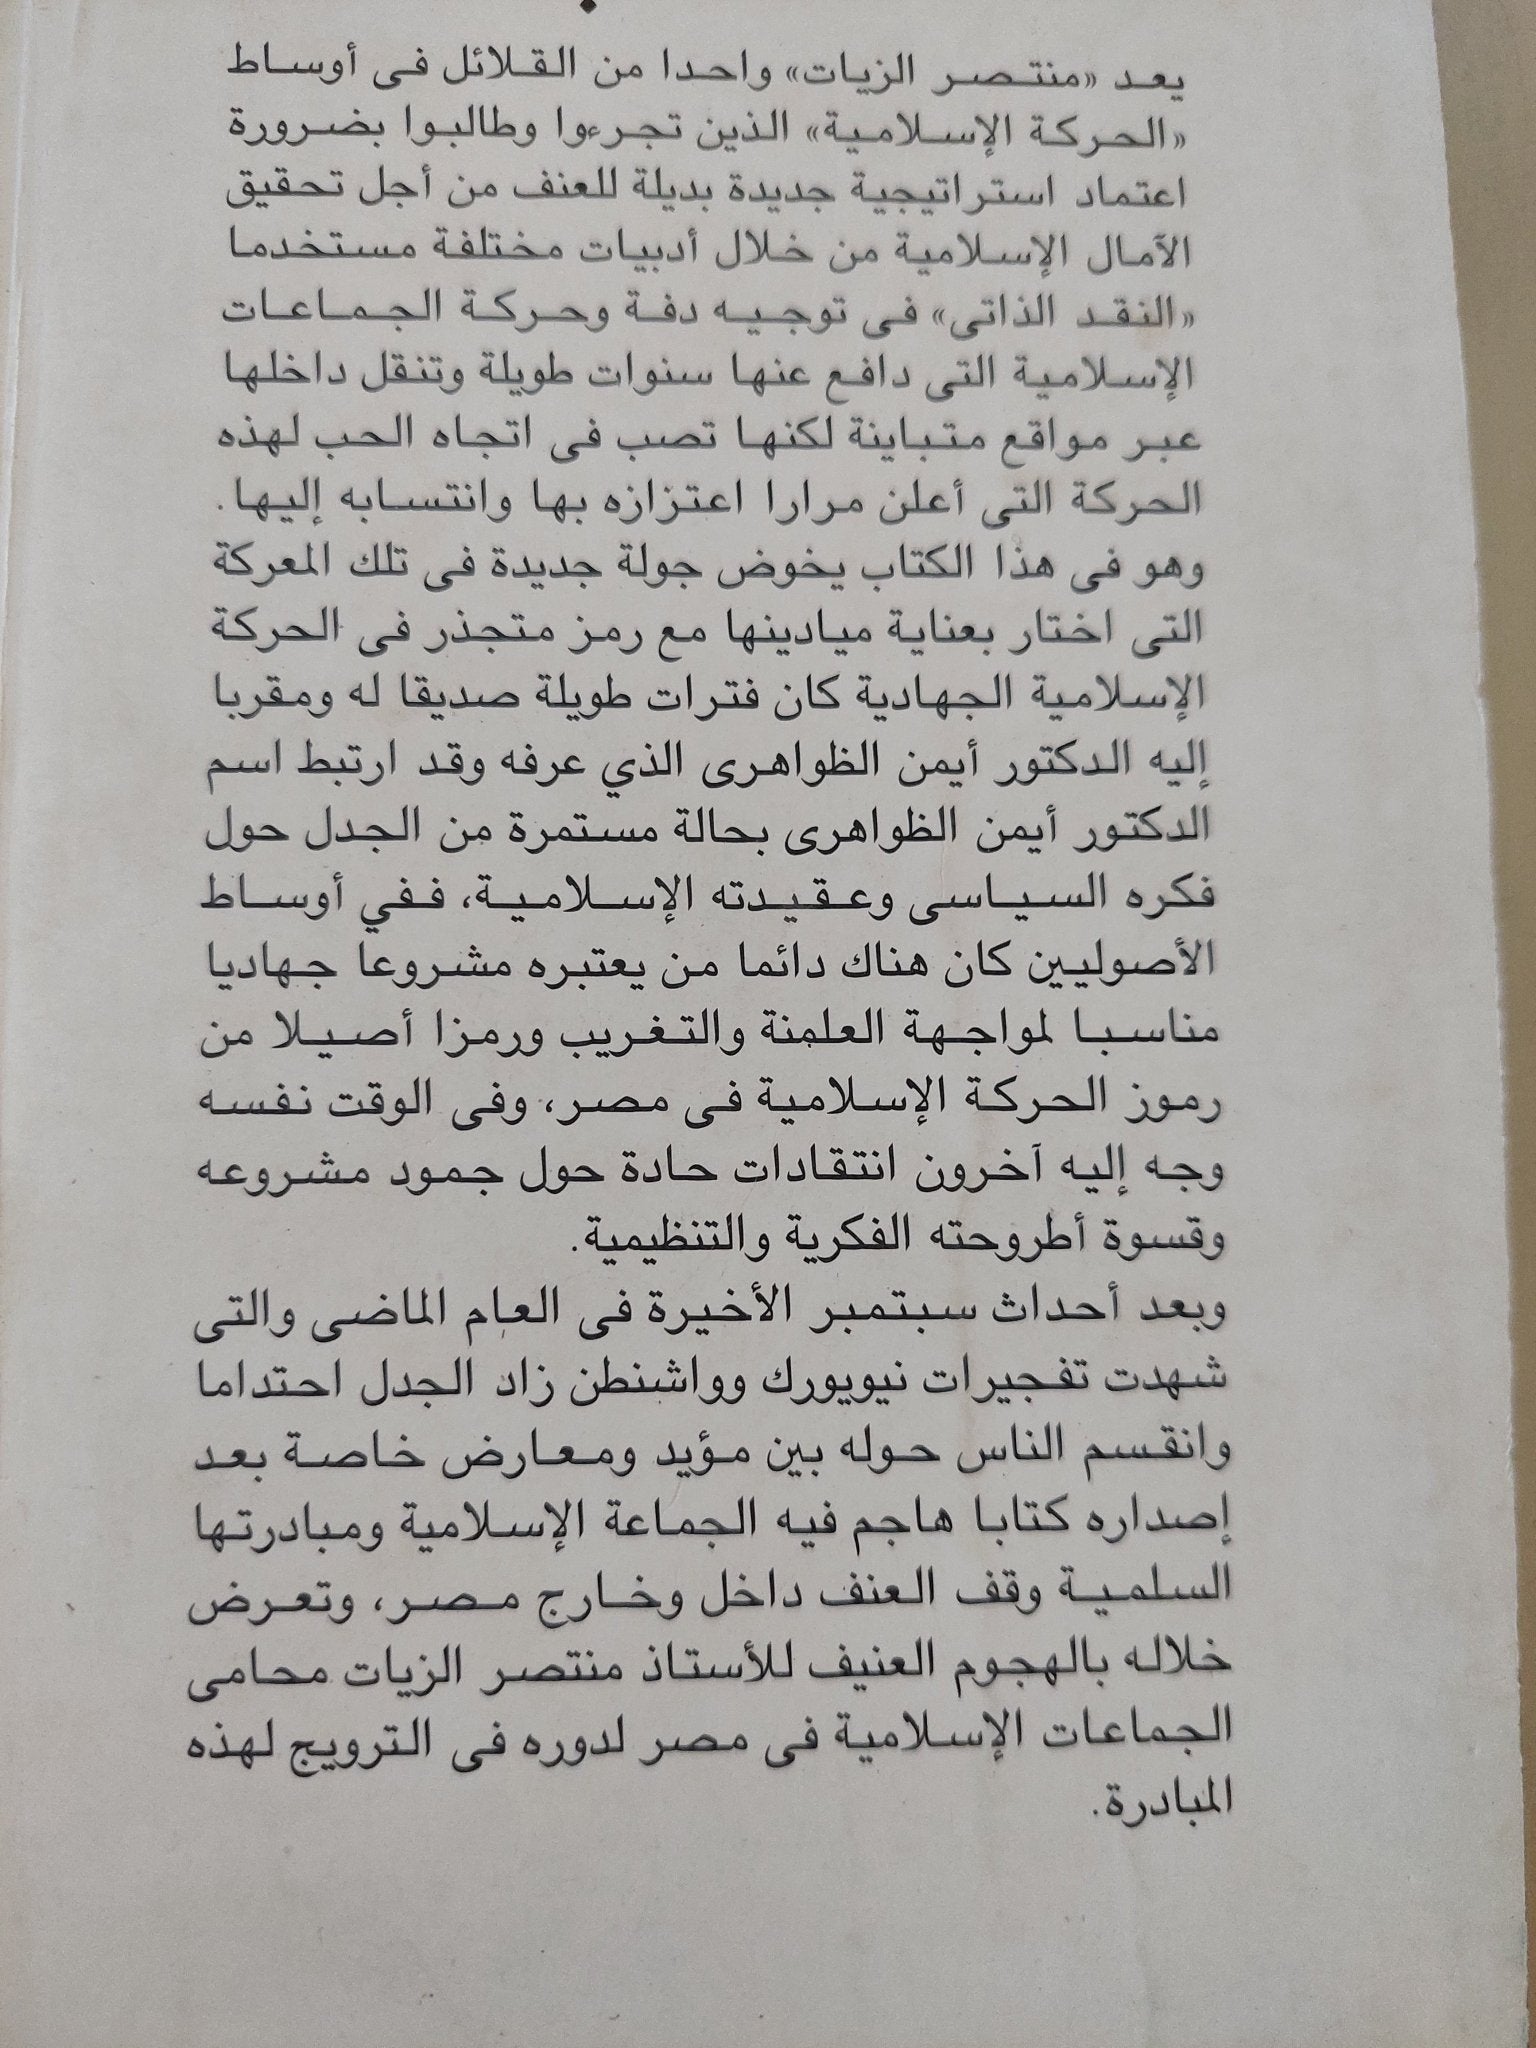 يعد «منتصر الزيات» واحدا من القلائل فى أوساط
«الحركة الإسلامية» الذين تجرءوا وطالبوا بضرورة
اعتماد استراتيجية جديدة بديلة للعنف من أجل تحقيق
الآمال الإسلامية من خلال أدبيات مختلفة مستخدما
«النقد الذاتى» فى توجيه دفة وحركة الجماعات
الإسلامية التى دافع عنها سنوات طويلة وتنقل داخلها
عبر مواقع متباينة لكنها تصب فى اتجاه الحب لهذه
الحركة التى أعلن مرارا اعتزازه بها وانتسابه إليها.
وهو فى هذا الكتاب يخوض جولة جديدة فى تلك المعركة
التى اختار بعناية ميادينها مع رمز متجذر فى الحركة
الإسلامية الجهادية كان فترات طويلة صديقا له ومقربا
إليه الدكتور أيمن الظواهرى الذي عرفه وقد ارتبط اسم
الدكتور أيمن الظواهرى بحالة مستمرة من الجدل حول
فكره السياسى وعقيدته الإسلامية، ففي أوساط
الأصوليين كان هناك دائما من يعتبره مشروعا جهاديا
مناسبا لمواجهة العلمنة والتغريب ورمزا أصيلا من
رموز الحركة الإسلامية فى مصر، وفى الوقت نفسه
وجه إليه آخرون انتقادات حادة حول جمود مشروعه
وقسوة أطروحته الفكرية والتنظيمية.
وبعد أحداث سبتمبر الأخيرة فى العام الماضى والتى
شهدت تفجيرات نيويورك وواشنطن زاد الجدل احتداما
وانقسم الناس حوله بين مؤيد ومعارض خاصة بعد
إصداره كتابا هاجم فيه الجماعة الإسلامية ومبادرتها
السلمية وقف العنف داخل وخارج مصر، وتعرض
خلاله بالهجوم العنيف للأستاذ منتصر الزيات محامى
الجماعات الإسلامية فى مصر لدوره فى الترويج لهذه
المبادرة.